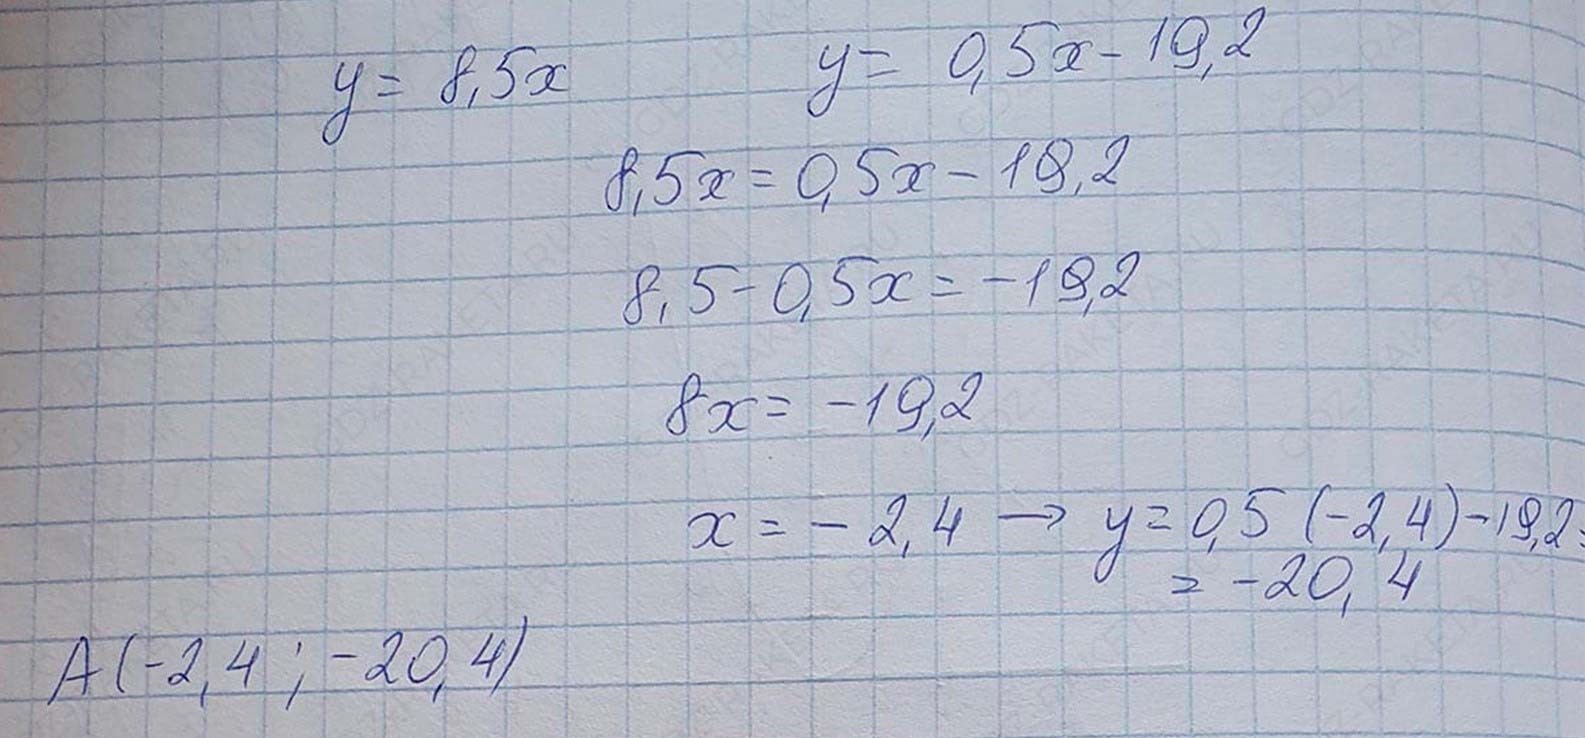 y = 8,5x y = 0,5x - 19,2
8,5x = 0,5x - 19,2
8,5 - 0,5x = -19,2
8x = -19,2
x = -2,4 → y = 0,5 (-2,4) - 19,2 =
= -20,4
A (-2,4 ; -20,4)